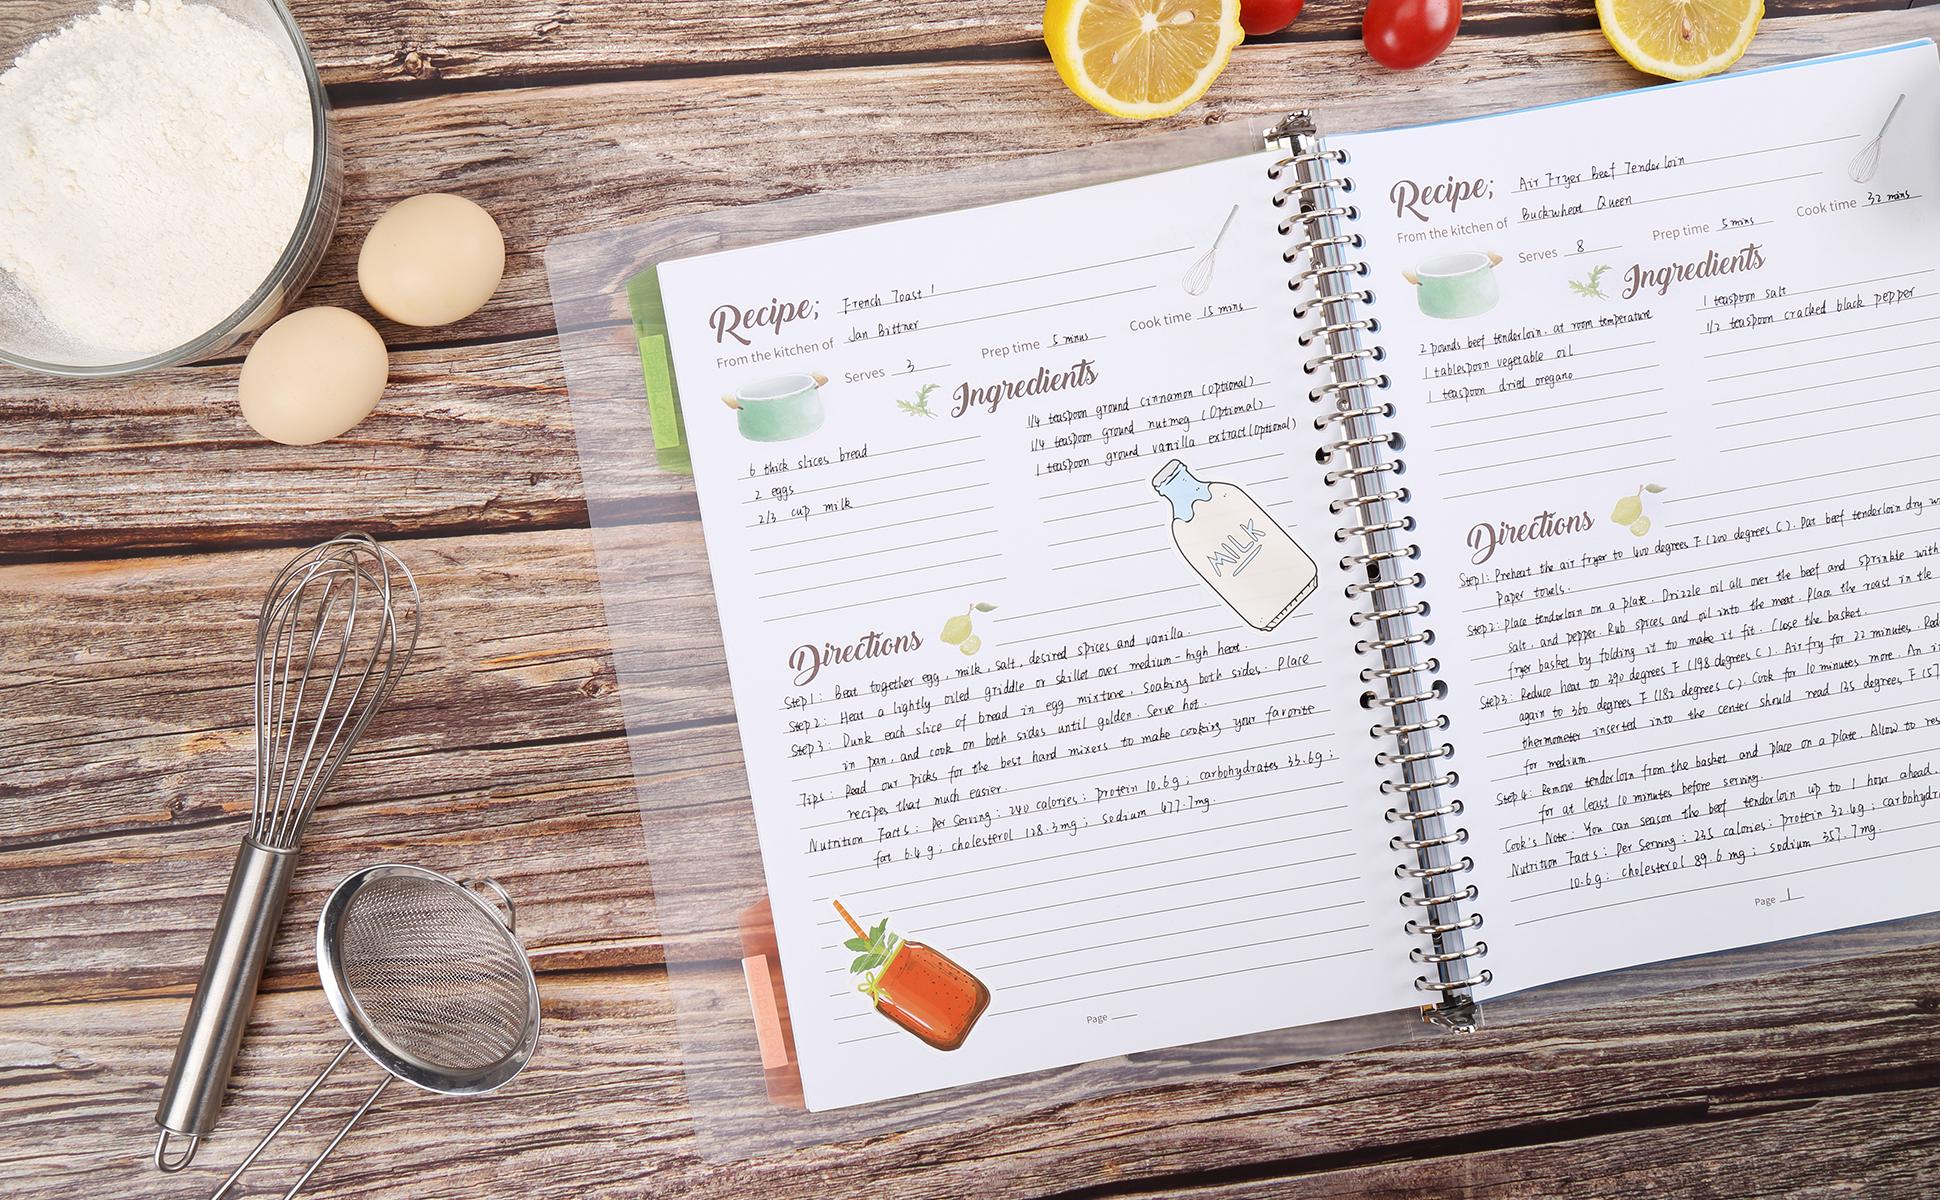 Recipe; French Toast 1
From the kitchen of Jan Bittner
Serves 3 Prep time 5 minus Cook time 15 mins
Ingredients
6 thick slices bread
2 eggs
2/3 cup milk
1/4 teaspoon ground cinnamon (optional)
1/4 teaspoon ground nutmeg (Optional)
1 teaspoon ground vanilla extract (Optional)
MILK
Directions
Step1: Beat together egg, milk, salt, desired spices and vanilla.
Step2: Heat a lightly oiled griddle or skillet over medium-high heat.
Step3: Dunk each slice of bread in egg mixture, soaking both sides. Place
in pan, and cook on both sides until golden. Serve hot.
Tips: Read our picks for the best hand mixers to make cooking your favorite
recipes that much easier.
Nutrition Facts: Per Serving: 240 calories; protein 10.6g; carbohydrates 33.6g;
fat 6.4g; cholesterol 128.3mg; sodium 477.7mg.
Page
Recipe; Air Fryer Beef Tenderloin
From the kitchen of Buckwheat Queen
Serves 8 Prep time 5 mins Cook time 32 mins
Ingredients
2 pounds beef tenderloin, at room temperature
1 tablespoon vegetable oil
1 teaspoon dried oregano
1 teaspoon salt
1/2 teaspoon cracked black pepper
Directions
Step1: Preheat the air fryer to 400 degrees F (200 degrees C). Pat beef tenderloin dry
paper towels.
Step2: Place tenderloin on a plate. Drizzle oil all over the beef and sprinkle with
salt, and pepper. Rub spices and oil into the meat. Place the roast in the
fryer basket by folding it to make it fit. Close the basket.
Step3: Reduce heat to 390 degrees F (198 degrees C). Air fry for 22 minutes.
again to 360 degrees F (182 degrees C). Cook for 10 minutes more. An
thermometer inserted into the center should read 135 degrees F (57
for medium.
Step4: Remove tenderloin from the basket and place on a plate. Allow to
for at least 10 minutes before serving.
Cook's Note: You can season the beef tenderloin up to 1 hour ahead.
Nutrition Facts: Per Serving: 235 calories; protein 32.4g;
10.6g; cholesterol 89.6mg; sodium 357.7mg.
Page 1